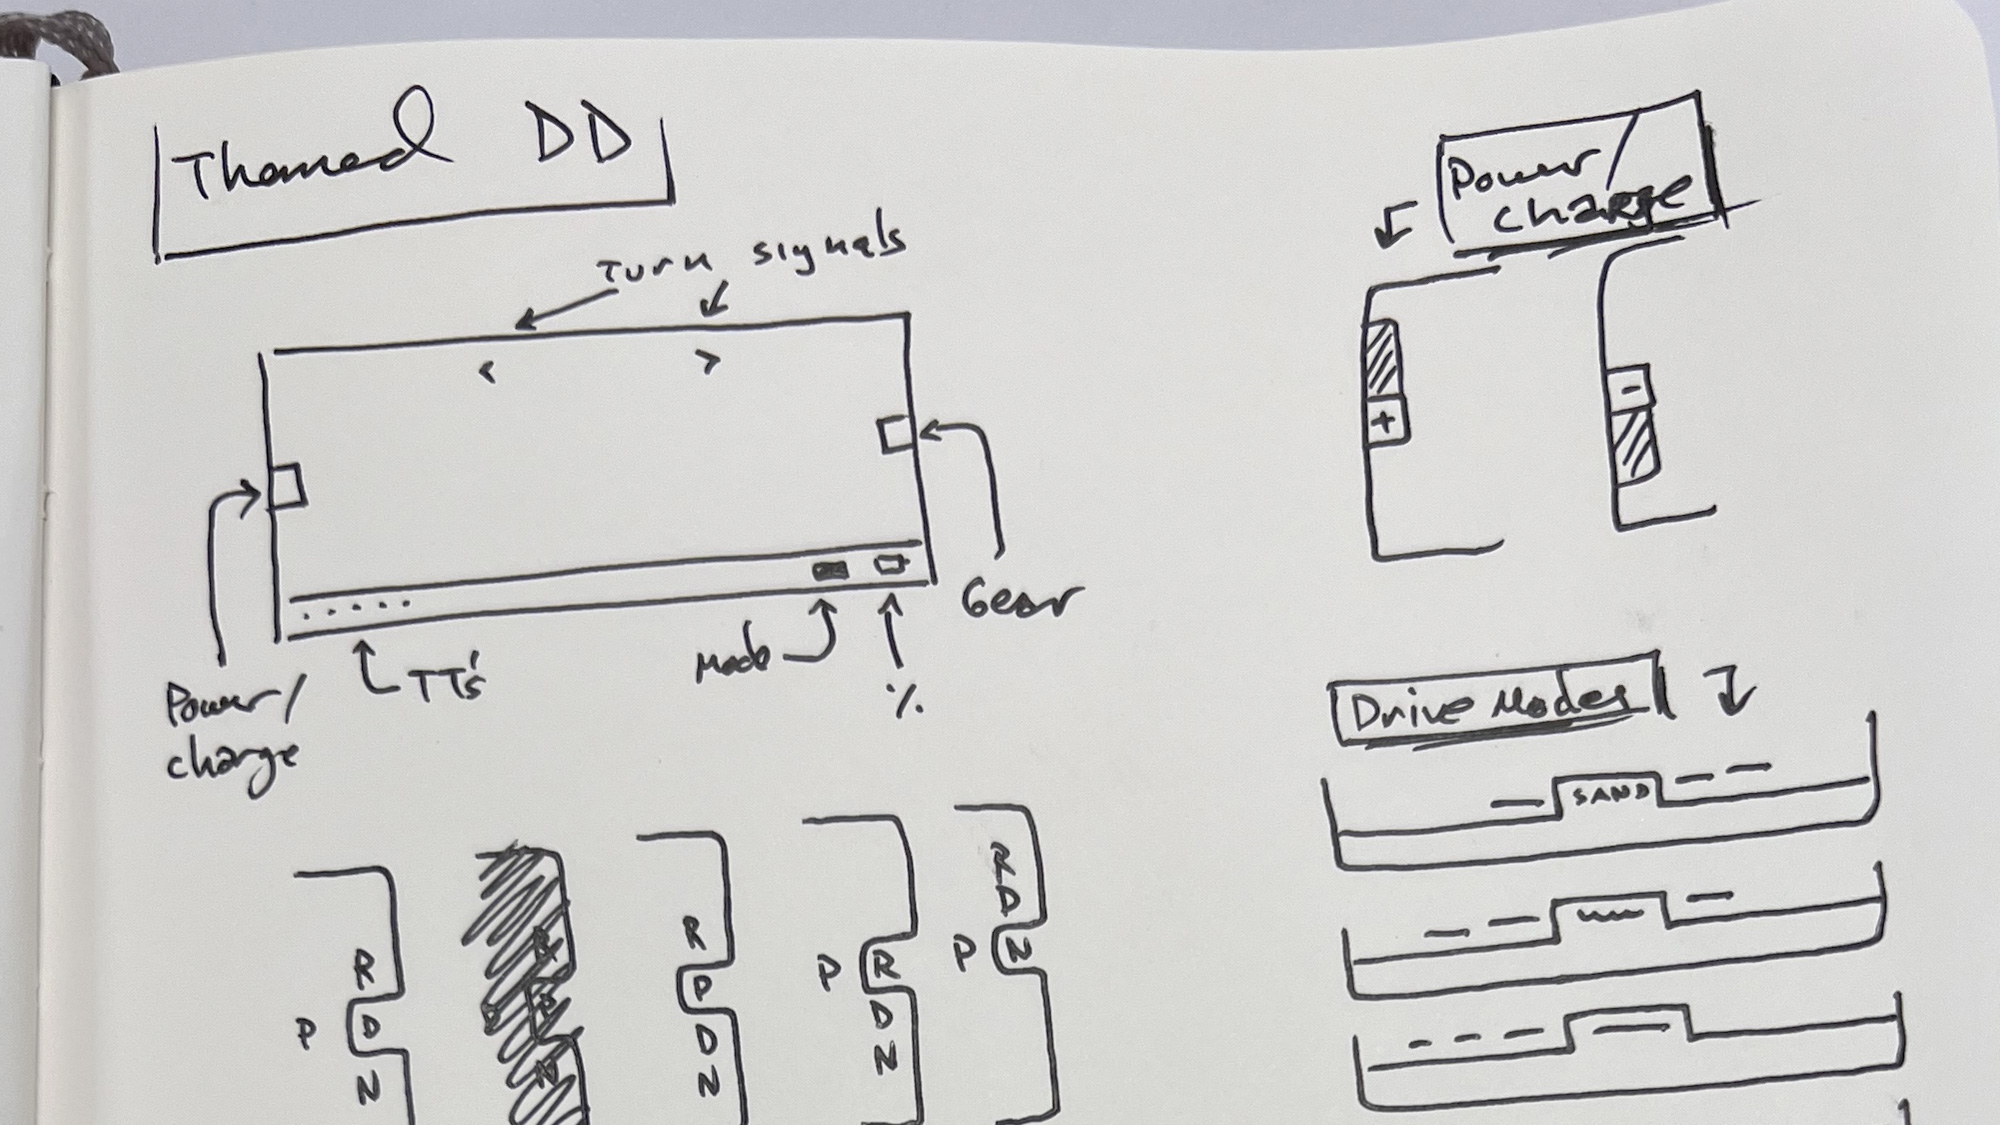 Themed DD
Turn signals
< >
Gear
TT's
Mode
%
Power/
charge
R
P D
N
R
P
D
N
P R
D
N
R
D
P N
Power/
charge
+
-
Drive Modes
SAND